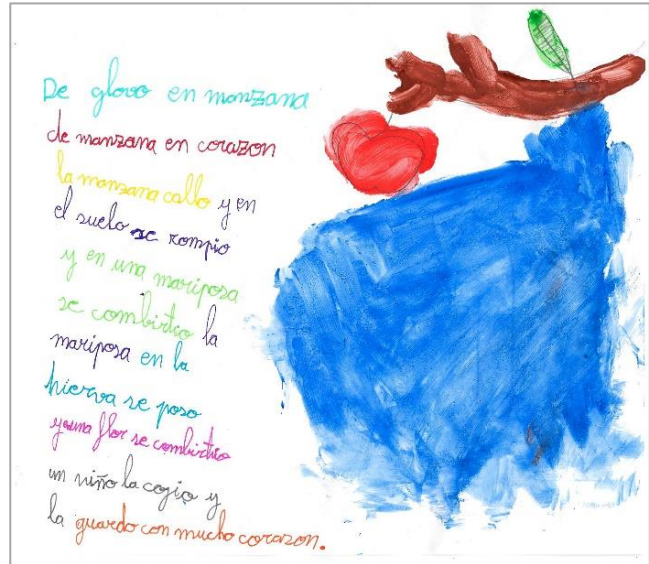 De glovo en manzana
de manzana en corazon
la manzana callo y en
el suelo se rompio
y en una mariposa
se combirtio la
mariposa en la
hierva se poso
y una flor se combirtio
un niño la cogio y
la guardo con mucho corazon.